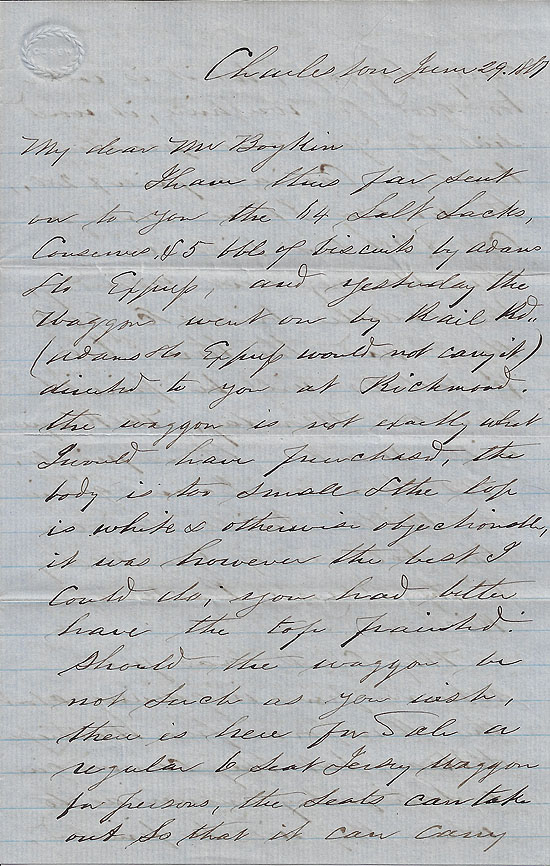 Charleston June 29. 1861
My dear Mr Boykin
I have thus far sent
on to you the 64 Salt Sacks,
Conserves, & 5 bbls of biscuits by Adams
Ho Express, and yesterday the
Waggon went on by Rail Rd..
(Adams Ho Express would not carry it)
directed to you at Richmond.
the waggon is not exactly what
I would have purchased, the
body is too small & the top
is white & otherwise objectionable,
it was however the best I
Could do; you had better
have the top painted.
Should the waggon be
not such as you wish,
there is here for Sale a
regular 6 Seat Jersey Waggon
for persons, the seats can take
out So that it can carry